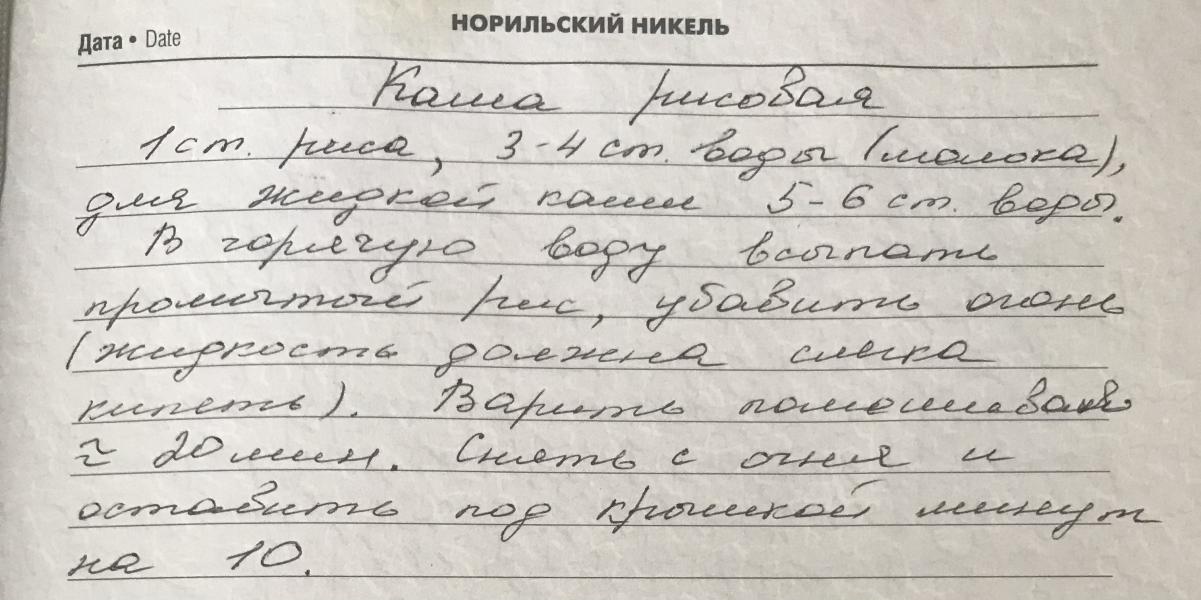 НОРИЛЬСКИЙ НИКЕЛЬ
Дата • Date
Каша рисовая
1 ст. риса, 3-4 ст. воды (молока),
для жидкой каши 5-6 ст. воды.
В горячую воду всыпать
промытый рис, убавить огонь
(жидкость должна слегка
кипеть). Варить помешивая
≈ 20 мин. Снять с огня и
оставить под крышкой минут
на 10.